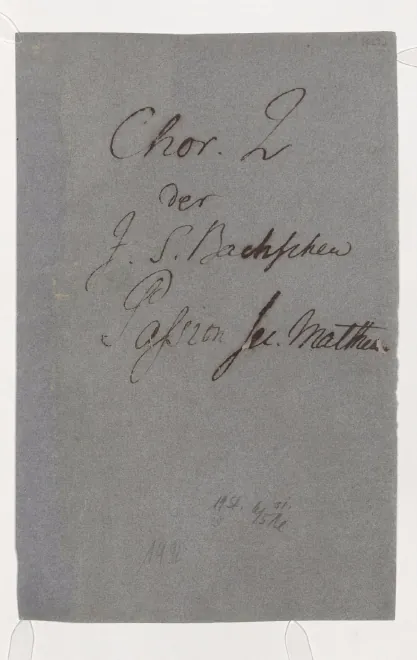 Chor. 2
der
J. S. Bachschen
Passion sec. Mattheu.